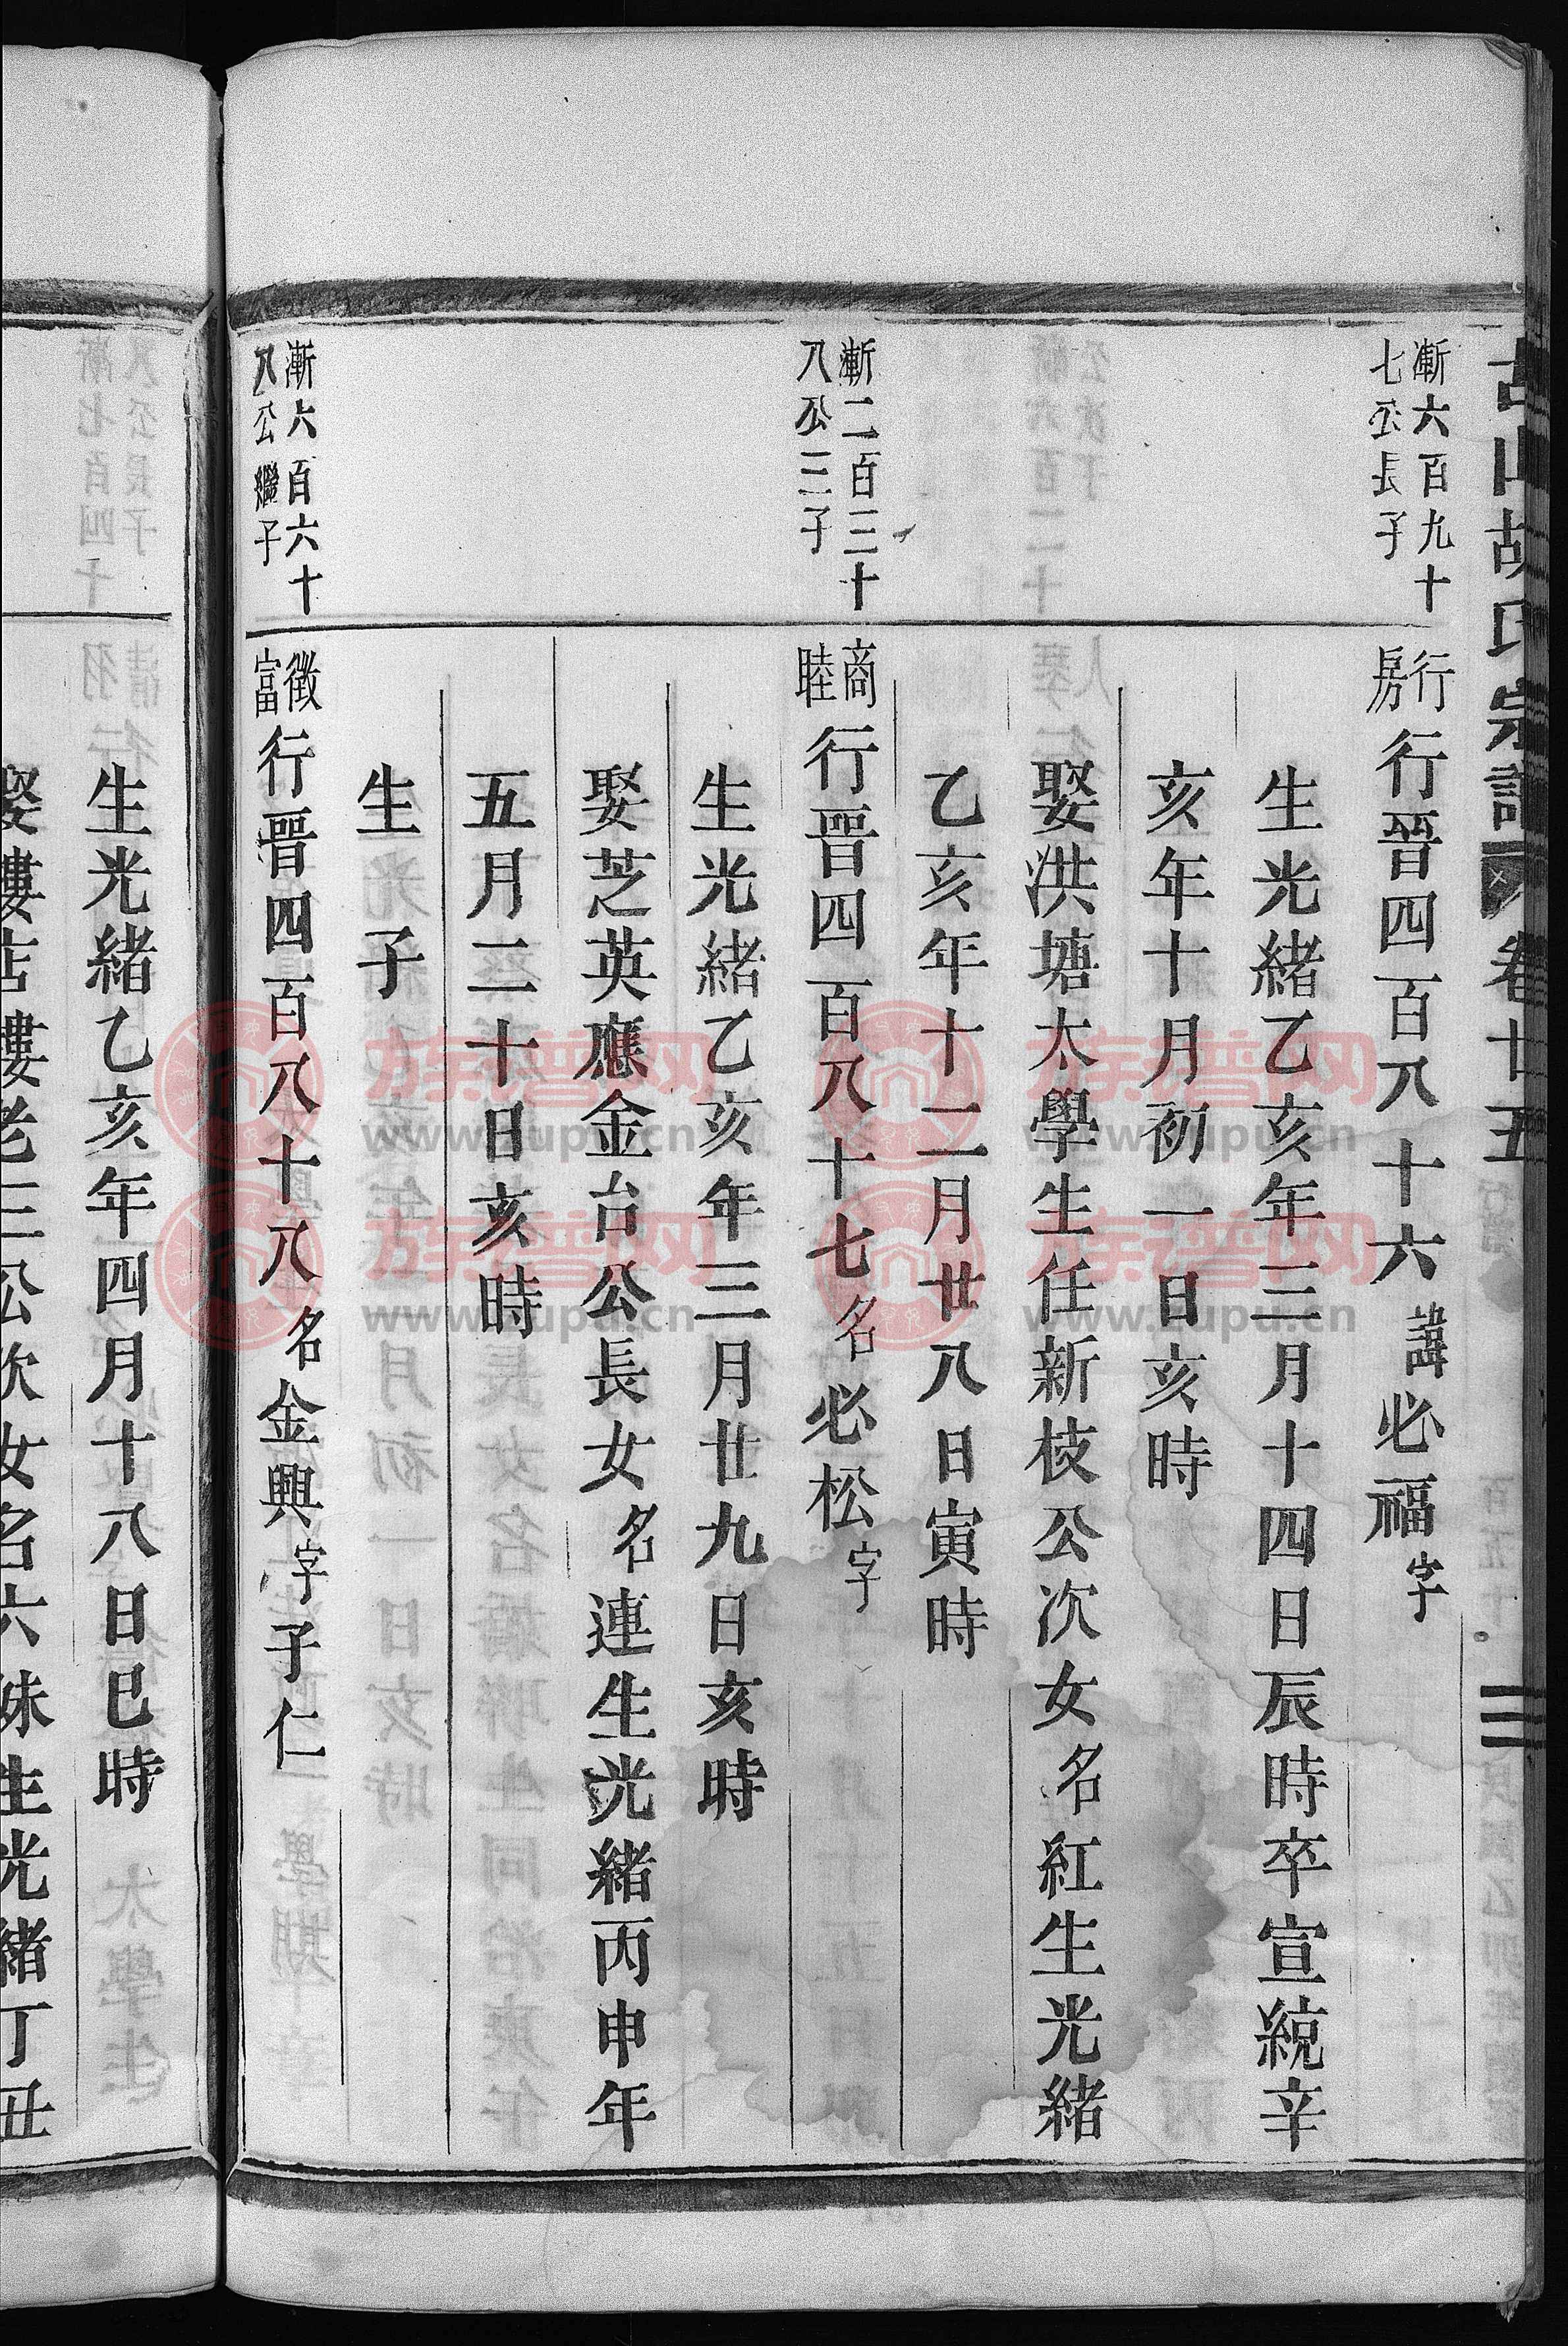 古山胡氏宗譜 卷廿五 三
漸六百九十
七公長子
行房
行晉四百八十六諱必福字
生光緒乙亥年三月十四日辰時卒宣統辛
亥年十月初一日亥時
娶洪塘太學生任新枝公次女名紅生光緒
乙亥年十二月廿八日寅時
漸二百三十
八公三子
商睦
行晉四百八十七名必松字
生光緒乙亥年三月廿九日亥時
娶芝英應金台公長女名連生光緒丙申年
五月二十日亥時
生子
漸六百六十
八公繼子
徵富
行晉四百八十八名金興字子仁
生光緒乙亥年四月十八日巳時
娶樓店樓老三公次女名六妹生光緒丁丑
族谱网
www.zupu.cn
族谱网
www.zupu.cn
族谱网
www.zupu.cn
族谱网
www.zupu.cn